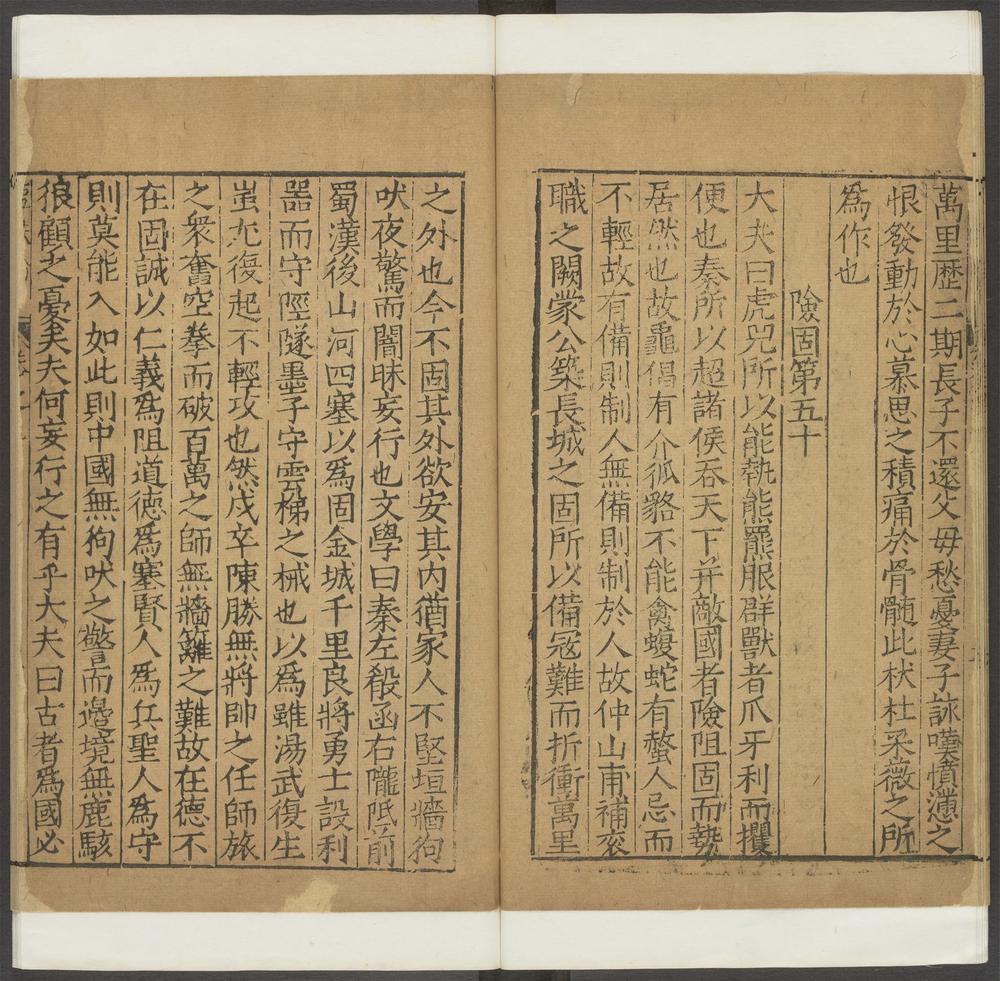 萬里歷二期長子不還父毋愁憂妻子詠嘆憤懣之
恨發動於心慕思之積痛於骨髓此杕杜采薇之所
爲作也
險固第五十
大夫曰虎兕所以能執熊羆服群獸者爪牙利而攫
便也秦所以超諸侯吞天下并敵國者險阻固而勢
居然也故龜猖有介狐貉不能禽蝮蛇有螫人忌而
不輕故有備則制人無備則制於人故仲山甫補衮
職之闕蒙公築長城之固所以備寇難而折衝萬里
之外也今不固其外欲安其内猶家人不堅垣牆狗
吠夜驚而闇昧妄行也文學曰秦左殽函右隴阺前
蜀漢後山河四塞以爲固金城千里良將勇士設利
器而守陘隧墨子守雲梯之械也以爲雖湯武復生
蚩尤復起不輕攻也然戍卒陳勝無將帥之任師旅
之衆奮空拳而破百萬之師無牆籬之難故在德不
在固誠以仁義爲阻道德爲塞賢人爲兵聖人爲守
則莫能入如此則中國無狗吠之警而邊境無鹿駭
狼顧之憂夫夫何妄行之有乎大夫曰古者爲國必